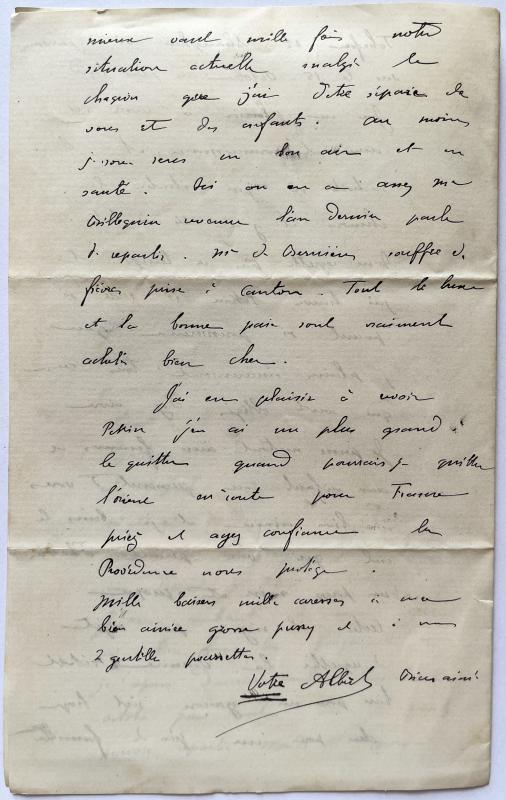 mieux vaut mille fois notre
situation actuelle malgré le
chagrin que j'ai d'être séparé de
vous et des enfants. Au moins
je vous sens en bon air et en
santé. Ici on en a assez Mr
revenu l'an dernier parle
de repartir. Mr de souffre de
fièvres prise à Canton. Tout le luxe
et la bonne paie sont vraiment
achetés bien cher.
J'ai eu plaisir à voir
Pékin j'en ai un plus grand à
le quitter quand pourrais-je quitter
en route pour France
priez et ayez confiance la
Providence nous protège.
Mille baisers mille caresses à ma
bien aimée grosse pussy et à mes
2 gentille poussettes.
Votre Albert bien aimé